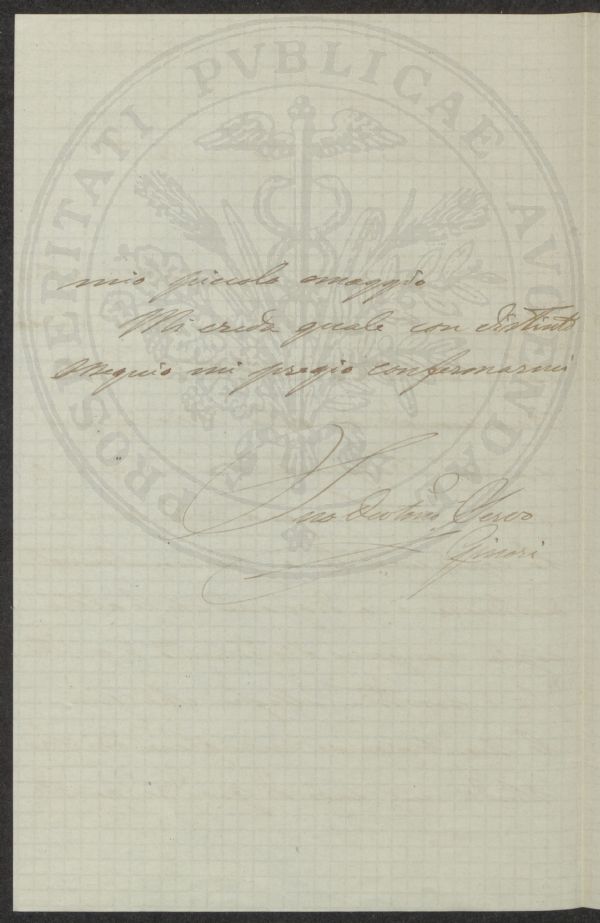 PROSPERITATI PVBLICAE AVGENDAE
mio piccolo omaggio
Mi creda quale con distinto
ossequio mi pregio confermarmi
Suo Devotmo Servo
Ginori